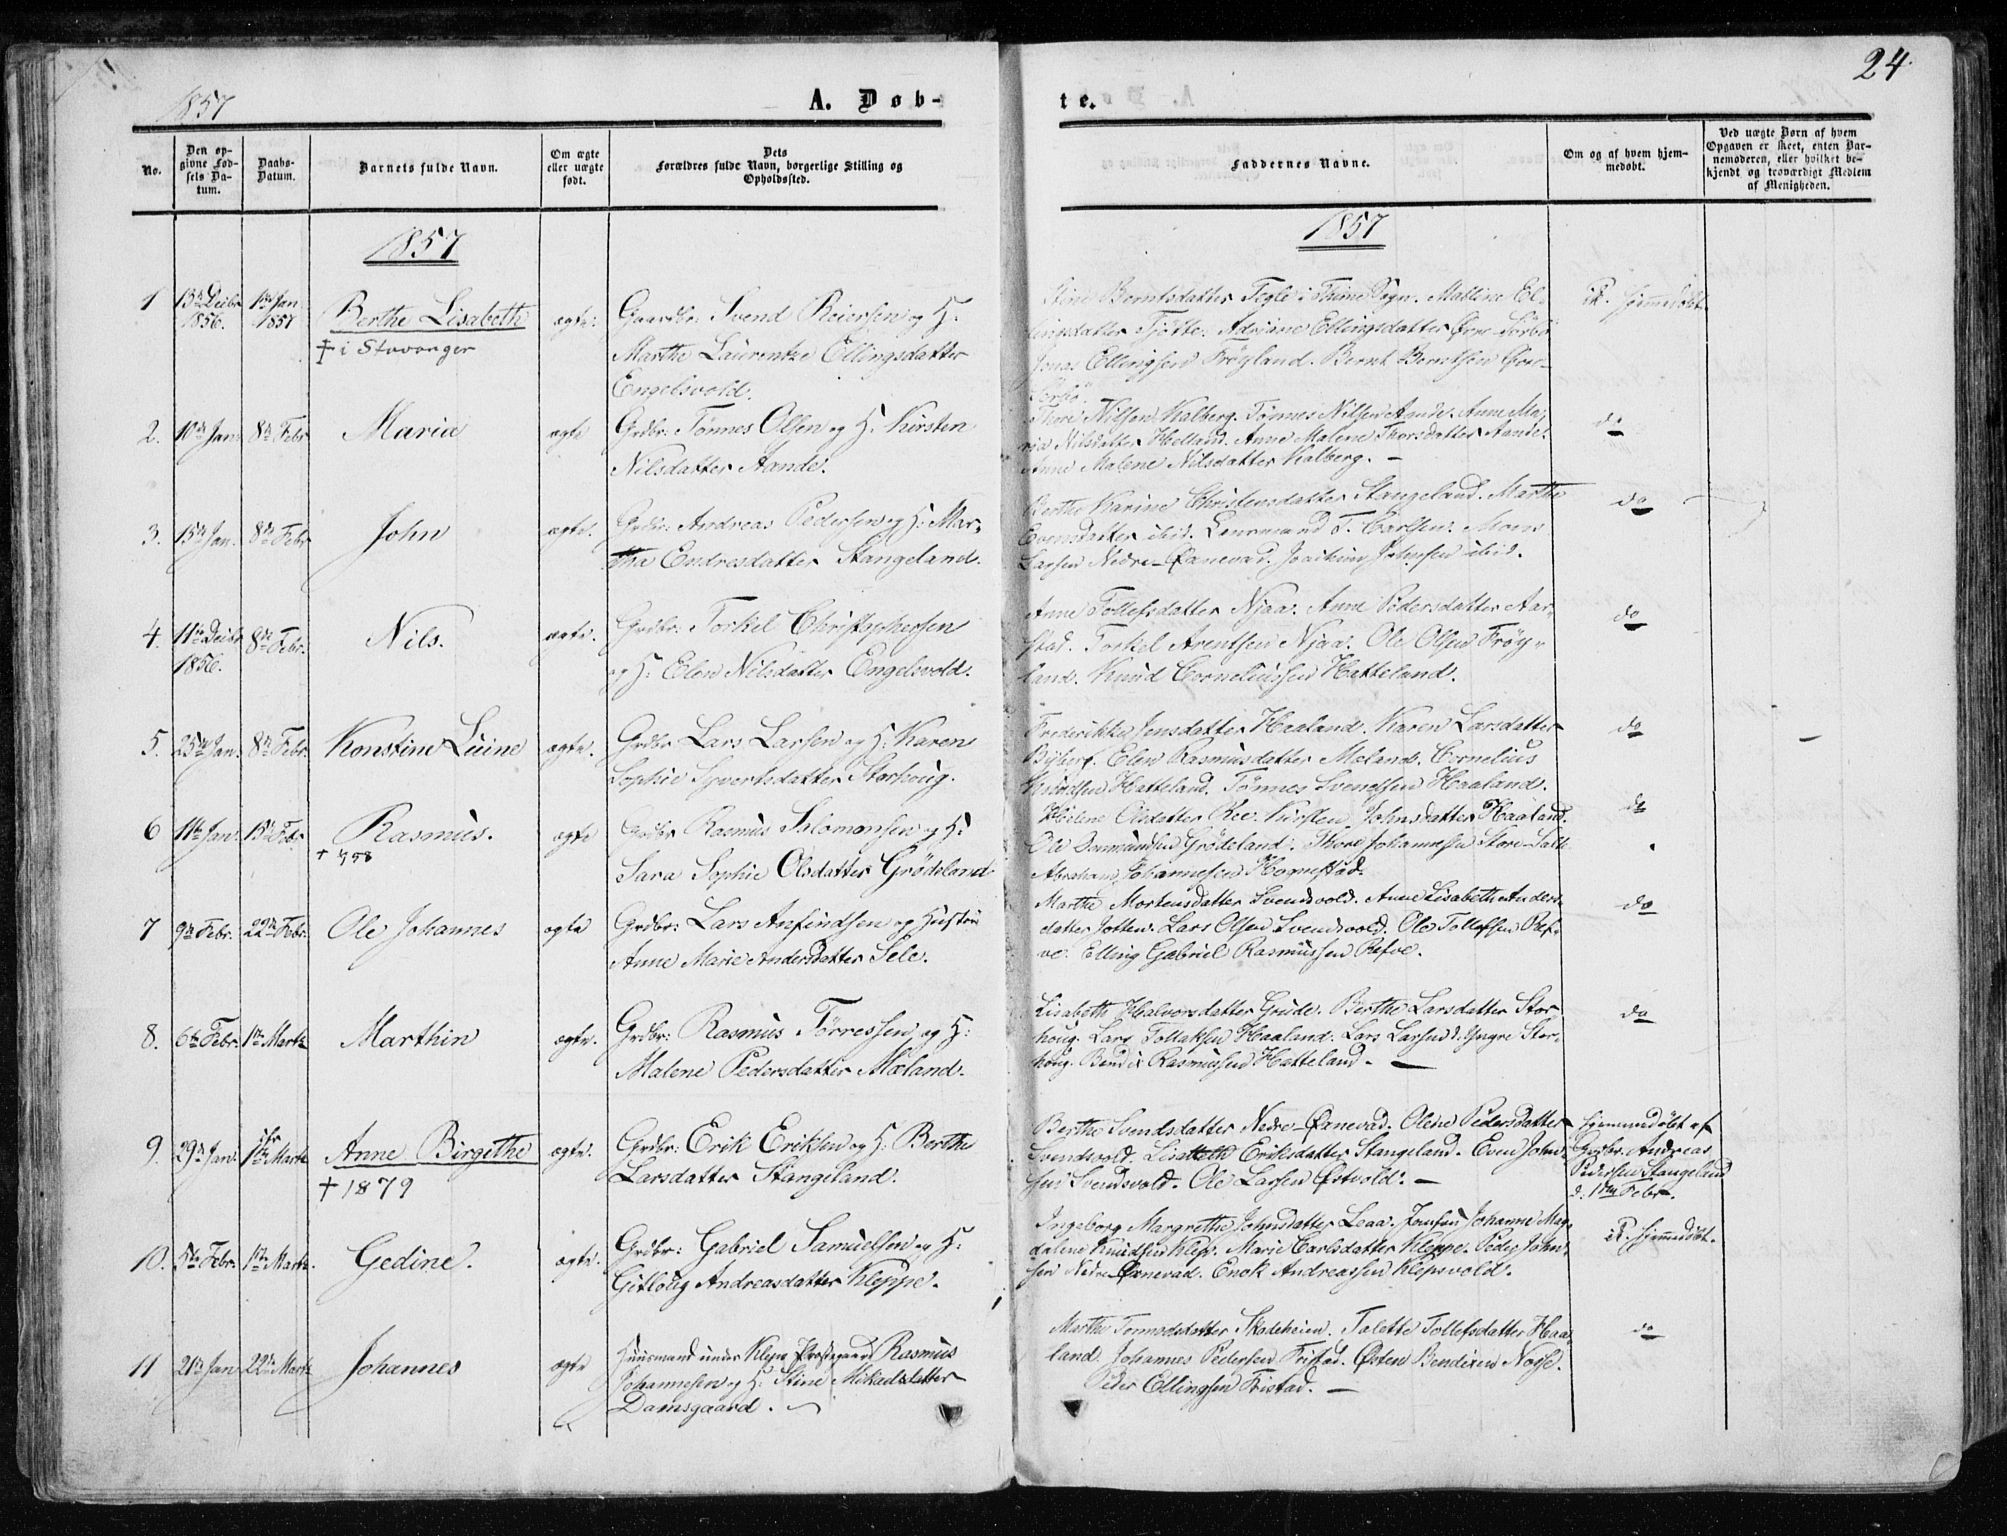 24.
1857
A. Døb-
te.
No.
Den op-
givne Fød-
sels Da-
tum.
Daabs-
Datum.
Barnets fulde Navn.
Om ægte
eller uægte
født.
Dets
Forældres fulde Navn, borgerlige Stilling og
Opholdssted.
Faddernes Navne.
Om og af hvem hjem-
medøbt.
Ved uægte Børn af hvem
Opgaven er skeet, enten Bar-
nemoderen, eller hvilket be-
kjendt og troværdigt Medlem
af Menigheden.
1857
1857
1
13de Decbr 1856.
1ste Jan. 1857
Berthe Lisabeth
† i Stavanger
ægte.
Gaardbr: Svend Reiersen og H:
Marthe Laurentze Ellingsdatter
Engelsvold.
Stine Berntsdatter Tegle i Thime Sogn. Mattine El-
lingsdatter Tjøtte. Adriane Ellingsdatter Øvre-Sørbø
Jonas Ellingsen Frøyland. Bernt Berntsen Øvre-
Sørbø.
ik. hjemmedøbt.
2.
10de Jan.
8de Febr
Maria
ægte
Grdbr: Tønnes Olsen og H. Kirsten
Nilsdatter Aande.
Thore Nilsen Kalberg. Tønnes Nilsen Aande. Anne Ma-
ria Nilsdatter Helland. Anne Malene Thorsdatter Aande.
Anne Malene Nilsdatter Kalberg. –
do
3.
15de Jan.
8de Febr
John
ægte.
Grdbr: Andreas Pedersen og H: Mar-
tha Endresdatter Stangeland.
Berthe Karine Christensdatter Stangeland. Marthe
Evensdatter ibid. Lensmand T. Carlsen. Mons
Larsen Nedre-Øxnevad. Joachim Johnsen ibid.
do
4.
11te Decbr 1856.
8de Febr.
Nils.
ægte.
Grdbr: Torkel Christophersen
og H: Elen Nilsdatter Engelsvold.
Anne Tollefsdatter Njaa. Anne Pedersdatter Aar-
stad. Torkel Arentsen Njaa. Ole Olsen Frøy-
land. Knud Corneliussen Hatteland.
do
5.
25de Jan.
8de Febr.
Konstine Luine
ægte.
Grdbr Lars Larsen og H: Karen
Sophie Syvertsdatter Storhoug.
Frederikke Jensdatter Haaland. Karen Larsdatter
Byberg. Elen Rasmusdatter Meland. Cornelius
Knudsen Hatteland. Tønnes Svendsen Haaland.
do
6
11te Jan.
15de Febr
Rasmus.
† 58
ægte
Grdbr Rasmus Salomonsen og H:
Sara Sophie Olsdatter Grødeland
Helene Olsdatter Ree. Kirsten Johnsdatter Haaland.
Ole Osmundsen Grødeland. Thore Johannesen Store-Salt
Abraham Johannesen Hognestad.
do
7
9de Febr.
22de Febr.
Ole Johannes
ægte
Grdbr: Lars Anfindsen og Hustru
Anne Marie Andersdatter Sele.
Marthe Mortensdatter Svendsvold. Anne Lisabeth Anders-
datter Jotten. Lars Olsen Svendsvold. Ole Tollefsen Ref-
ve. Elling Gabriel Rasmussen Refve.
do
8.
6te Febr.
1ste Marts
Marthin
ægte.
Grdbr: Rasmus Tørressen og H:
Malene Pedersdatter Mæland.
Lisabeth Halvorsdatter Grude. Berthe Larsdatter Stor-
houg. Lars Tollaksen Haaland. Lars Larsen d: Yngre Stor-
houg. Bendix Rasmussen Hatteland. –
do
9.
29de Jan.
1ste Marts
Anne Birgithe
† 1879
ægte.
Grdbr: Erik Eriksen og H: Berthe
Larsdatter Stangeland.
Berthe Svendsdatter Nedre-Øxnevad. Olene Pedersdatter
Svendsvold. Lisabeth Eriksdatter Stangeland. Even John-
sen Svendsvold. Ole Larsen Østvold. –
hjemmedøbt af
Grdbr. Andreas
Pedersen Stangeland
d. 1ste Febr.
10.
5te Febr.
1ste Marts.
Gedine.
ægte.
Grdbr: Gabriel Samuelsen og H:
Gitloug Andreasdatter Kleppe.
Ingeborg Margrethe Johnsdatter Leaa. Jomfru Johanne Mag-
dalene Knudsen Klep. Marie Carlsdatter Kleppe. Peder John-
sen Nedre Øxnevad. Enok Andreassen Klepsvold.
ik. hjemmedøbt.
11
21de Jan
22de Marts
Johannes
ægte
Huusmand under Klep Prestegaard Rasmus
Johannesen og H: Stine Mikaelsdatter
Damsgaard. –
Marthe Tormodsdatter Skadeheien. Talette Tollefsdatter Haa-
land. Johannes Pedersen Fristad. Østen Bendixen Norse.
Peder Ellingsen Fristad. –
do